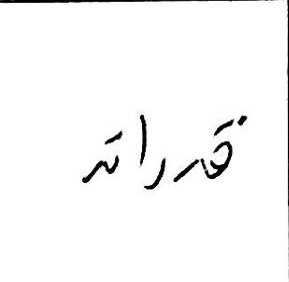 قدراته